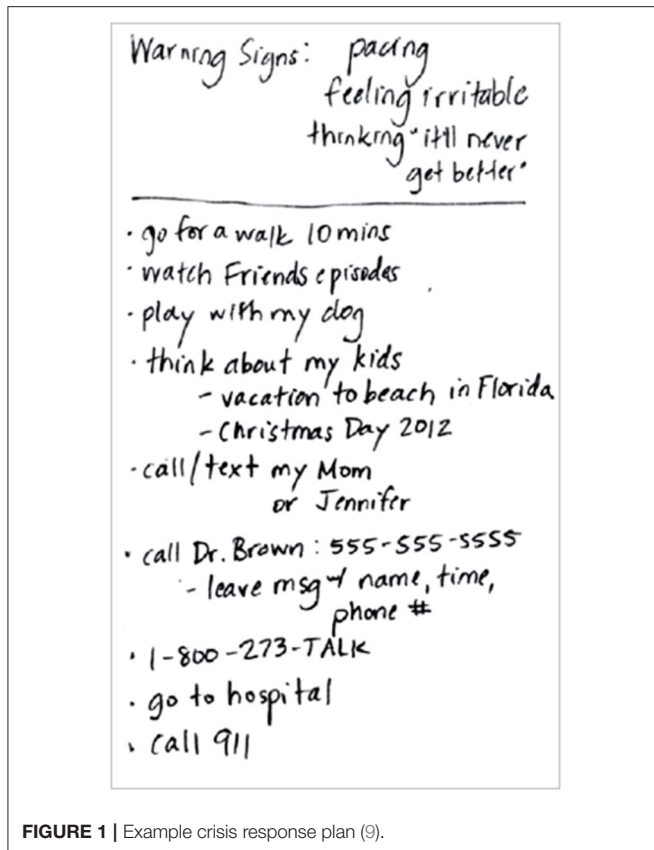 Warning Signs: pacing
feeling irritable
thinking "it'll never
get better"
· go for a walk 10 mins
· watch Friends episodes
· play with my dog
· think about my kids
- vacation to beach in Florida
- Christmas Day 2012
· call/text my Mom
or Jennifer
· call Dr. Brown: 555-555-5555
- leave msg w/ name, time,
phone #
· 1-800-273-TALK
· go to hospital
· call 911
FIGURE 1 | Example crisis response plan (9).